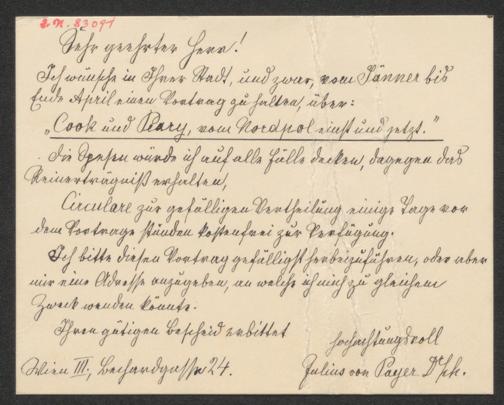 I.N. 83091
Sehr geehrter Herr!
Ich wünsche in Ihrer Stadt, und zwar, vom Jänner bis
Ende April einen Vortrag zu halten, über:
„Cook und Peary, vom Nordpol einst und jetzt."
Die Spesen würde ich auf alle Fälle decken, dagegen das
Reinerträgniß erhalten,
Circulare zur gefälligen Vertheilung einige Tage vor
dem Vortrage stünden kostenfrei zur Verfügung.
Ich bitte diesen Vortrag gefälligst herbeizuführen, oder aber
mir eine Adresse anzugeben, an welche ich mich zu gleichem
Zweck wenden könnte.
Ihren gütigen Bescheid erbittet
hochachtungsvoll
Wien III., Bechardgasse 24.
Julius von Payer